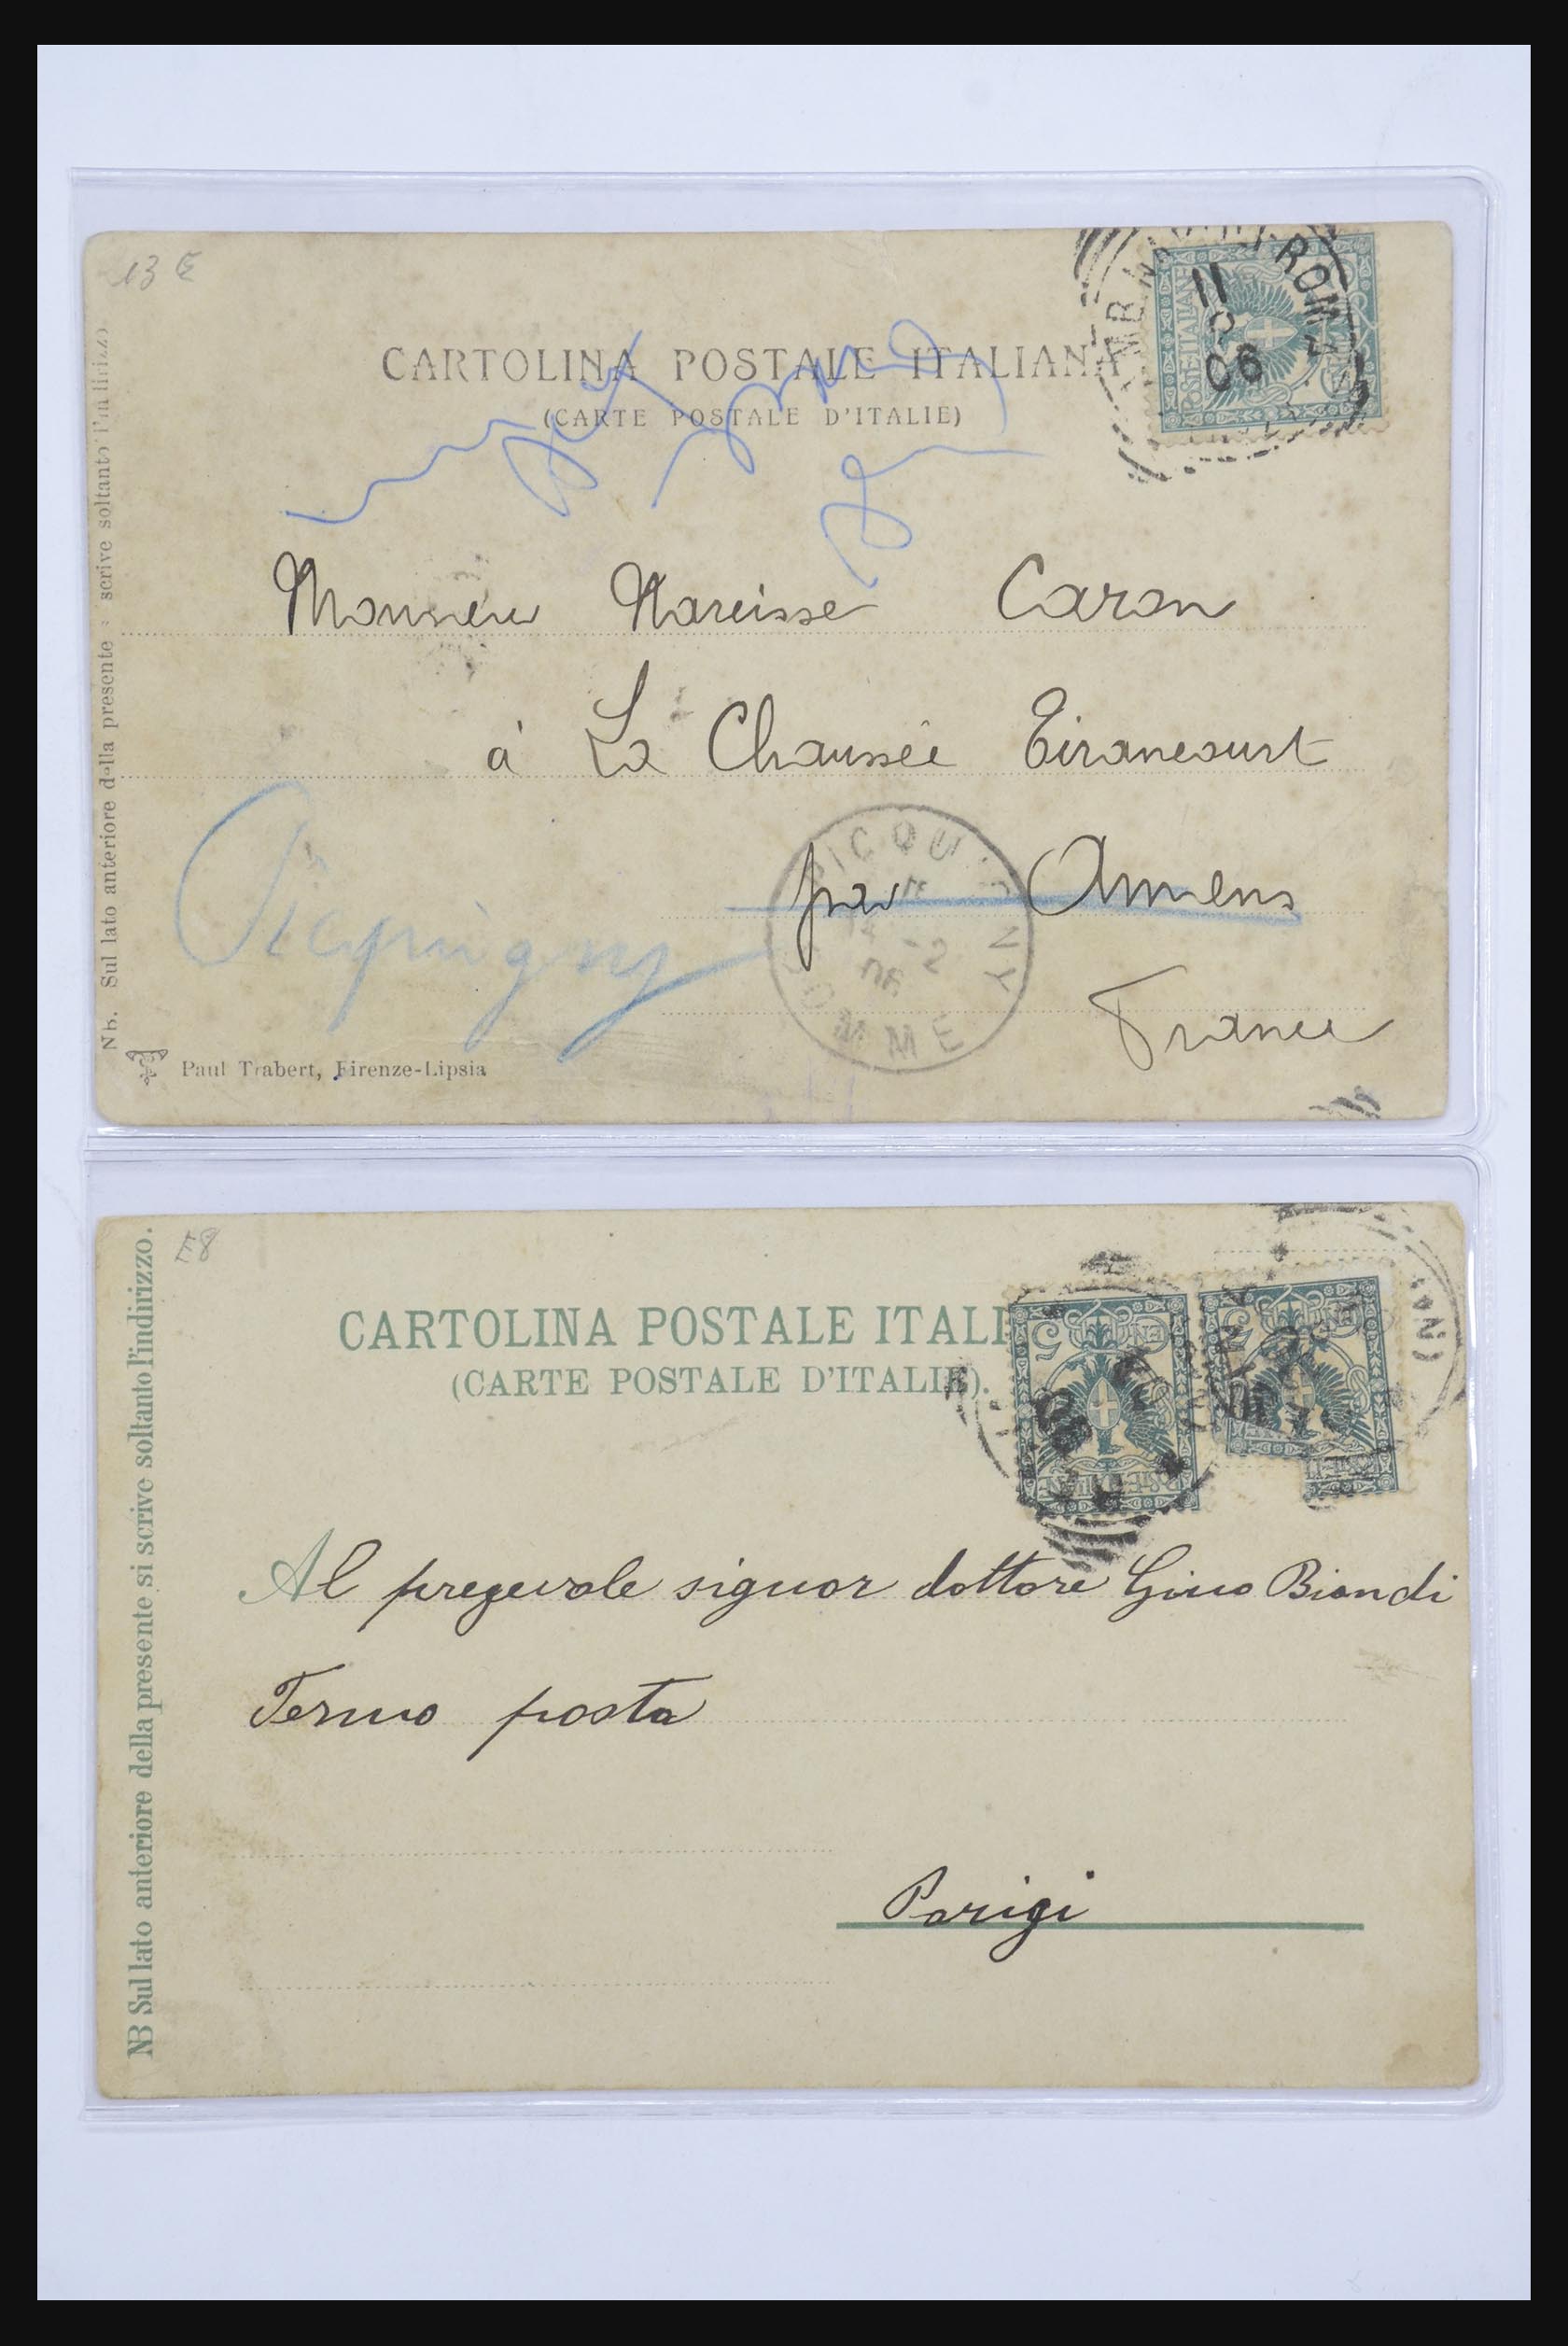 13 E
CARTOLINA POSTALE ITALIANA
(CARTE POSTALE D'ITALIE)
ROMA
11
2
06
POSTE ITALIANE
Monsieur Narcisse Caron
à La Chaussée Tirancourt
par Amiens
France
Picquigny
PICQUIGNY
-2
06
SOMME
Paul Trabert, Firenze-Lipsia
NB. Sul lato anteriore della presente si scrive soltanto l'indirizzo.
E8
CARTOLINA POSTALE ITALI
(CARTE POSTALE D'ITALIE).
5
Al pregevole signor dottore Gino Biondi
Fermo posta
Parigi
NB Sul lato anteriore della presente si scrive soltanto l'indirizzo.